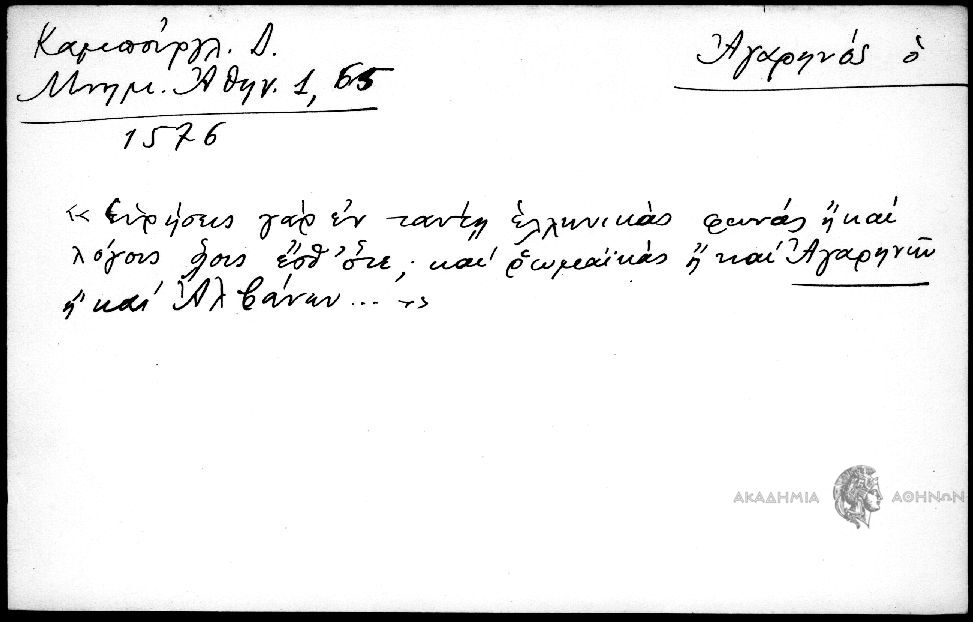 Καμπούργλ. Δ.
Μνημ. Ἀθην. 1, 65
1576
Ἀγαρηνός ὁ
« Εὑρήσεις γάρ ἐν ταύτῃ ἑλληνικάς φωνάς ἤ καί
λόγοις οἷς ἔσθ' ὅτε, καί ῥωμαϊκάς ἤ καί Ἀγαρηνῶν
ἤ καί Ἀλβάνων ... »
ΑΚΑΔΗΜΙΑ ΑΘΗΝΩΝ